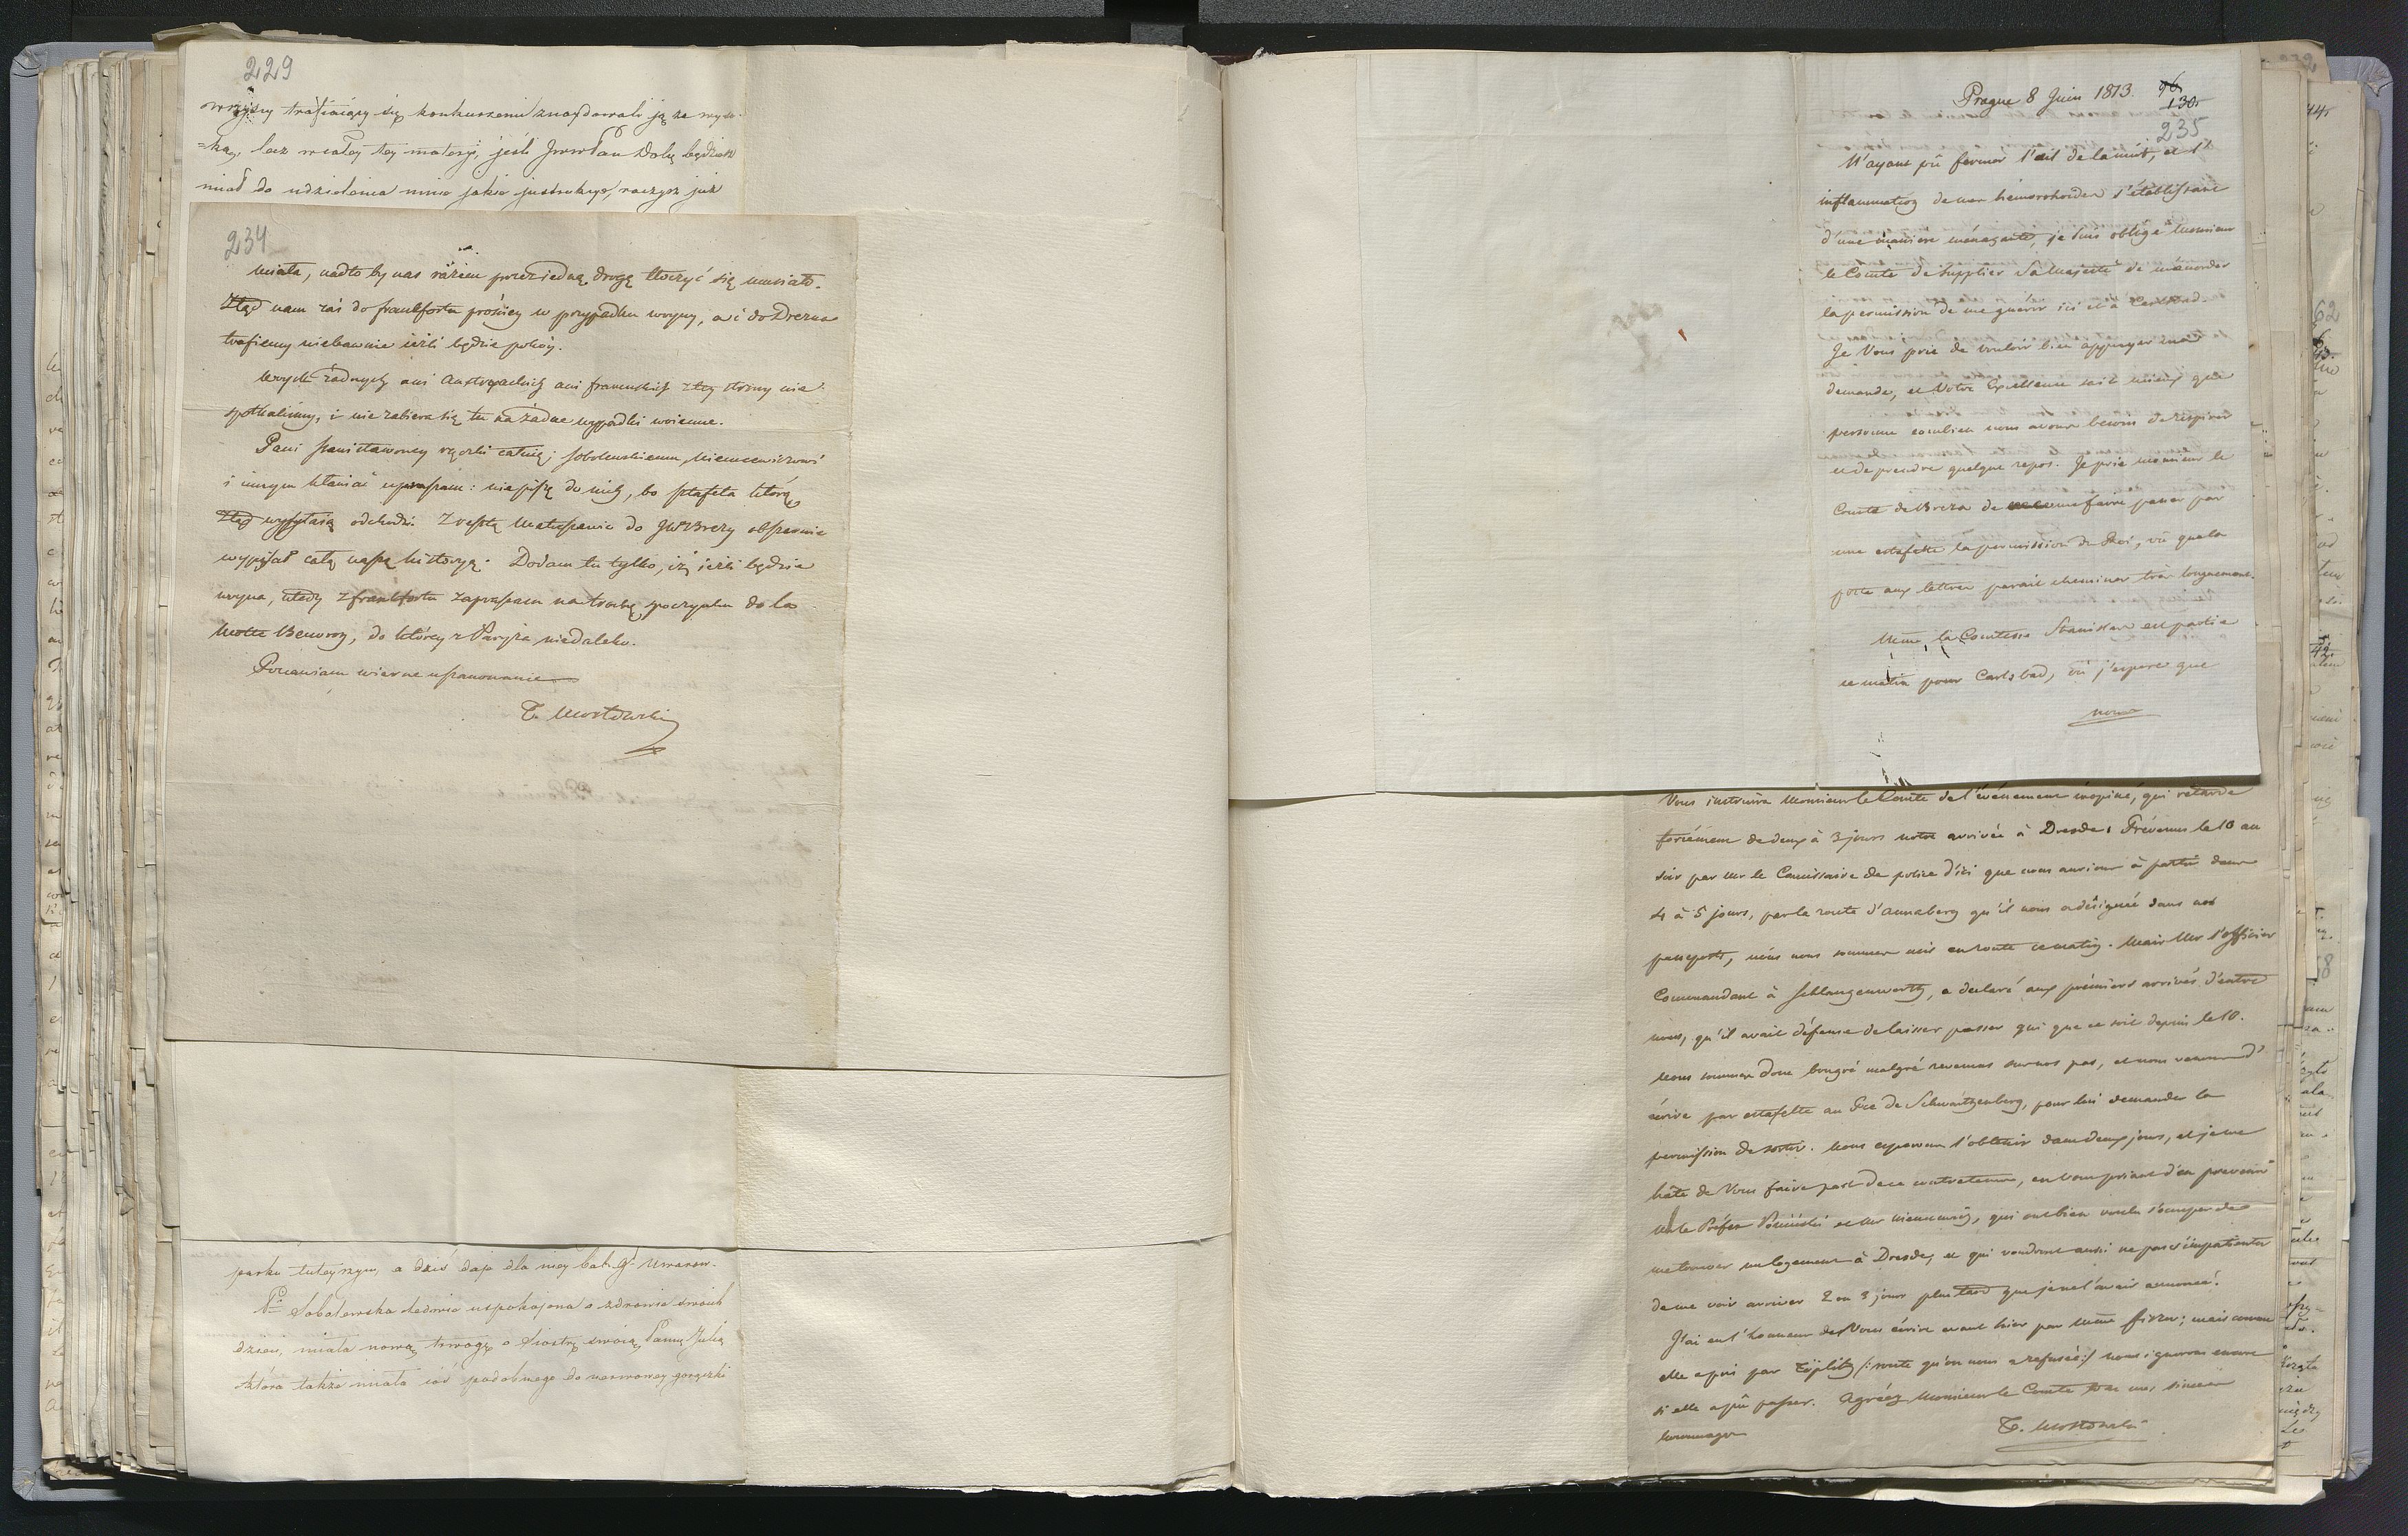 229
trafiaiący się konkurenci znaydowali ią za wyso-
=ką, lecz w całey tey materyi, jeśli JWWPan Dobr. będziesz
miał do udzielenia mnie jakie instrukcye, raczysz już
234
miała, nadto by nas razem przez iedną drogę tłoczyć się musiało.
Ztąd nam zaś do Frankfortu prościey w przypadku woyny, a i do Drezna
trafiemy niebawnie ieżli będzie pokóy.
Woysk żadnych ani Austryackich ani francuskich z tey strony nie
spotkaliśmy, i nie zabiera się tu na żadne wypadki woienne.
Pani Stanisławowey rączki całuię; Sobolewskiemu, Niemcewiczowi
i innym kłaniać upraszam: nie piszę do nich, bo sztafeta którą
Ztąd wysyłaią odchodzi. Zresztą Matuszewic do JW Brezy obszernie
wypisał całą naszą historyą. Dodam tu tylko, iż ieżli będzie
woyna, wtedy z Frankfortu zapraszam na trochę spoczynku do la
Motte Beuvron, do którey z Paryża niedaleko.
Ponawiam wierne uszanowanie
T. Mostowski
parku tuteyszym, a dziś daje dla niey bal
Pi Sobolewska ledwie uspokojona o zdrowie swoich
dzieci, miała nową trwogę o Siostrę swoią Pannę Julią
która także miała coś podobnego do nerwowey gorączki
Prague 8 Juin 1813.
130.
235
N'ayant pû fermer l'œil de la nuit, et l'
inflammation de mes hémorrhoides s'établissant
d'une maniere ménaçante, je suis obligé Monsieur
le Comte de supplier Sa Majesté de m'accorder
la permission de me guérir ici et à Carlsbad.
Je Vous prie de vouloir bien appuyer ma
demande, et Votre Excellence sait mieux que
personne combien nous avons besoin de respirer
et de prendre quelque repos. Je prie Monsieur le
Comte de Breza de me faire passer par
une estafette la permission du Roi, vû que la
poste aux lettres parait cheminer très longuement.
Mme la Comtesse Stanislas est partie
ce matin pour Carlsbad, où j'espere que
nous
Vous instruira Monsieur le Comte de l'événement inopiné, qui retarde
forcément de deux à 3 jours notre arrivée à Dresde. Prévenus le 10 au
soir par Mr le Commissaire de police d'ici que nous aurions à partir dans
4 à 5 jours, par la route d'Annaberg qu'il nous a désignée dans nos
passeports, nous nous sommes mis en route ce matin. Mais Mr l'officier
Commandant à Schlangenwerth, a declaré aux prémiers arrivés d'entre
nous, qu'il avait défense de laisser passer qui que ce soit depuis le 10.
Nous sommes donc bongré malgré revenus sur nos pas, et nous venons d'
écrire par estafette au Pce de Schwartzenberg, pour lui demander la
permission de sortir. Nous esperons l'obtenir dans deux jours, et je me
hâte de Vous faire part de ce contretems, en Vous priant d'en prevenir
Mr le Préfet et Mr Niemcewicz, qui ont bien voulu s'occuper de
me trouver un logement à Dresde, et qui voudront aussi ne pas s'impatienter
de me voir arriver 2 ou 3 jours plus tard que je ne l'avais annoncé.
J'ai eu l'honneur de Vous écrire avant hier par Mme ; mais comme
elle a pris par Töplitz /: route qu'on nous a refusée :/ nous ignorons encore
si elle a pû passer. Agréez Monsieur le Comte tous mes sinceres
hommages
T. Mostowski